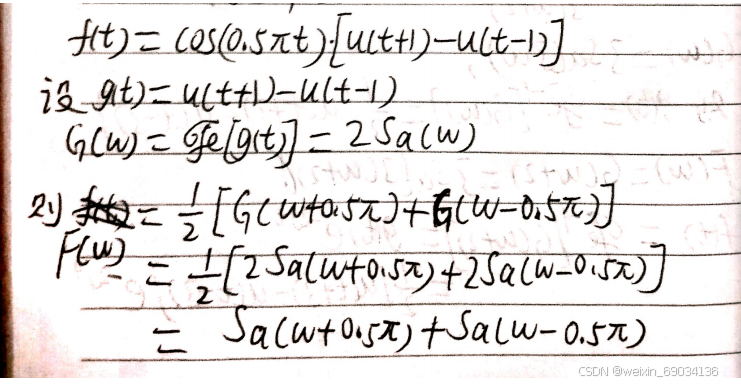 f(t) = cos(0.5πt)·[u(t+1)-u(t-1)]
设 g(t) = u(t+1)-u(t-1)
G(w) = [g(t)] = 2Sa(w)
则 = 1/2 [G(w+0.5π)+G(w-0.5π)]
F(w) = 1/2 [2Sa(w+0.5π)+2Sa(w-0.5π)]
= Sa(w+0.5π)+Sa(w-0.5π)
CSDN @weixin_69034136